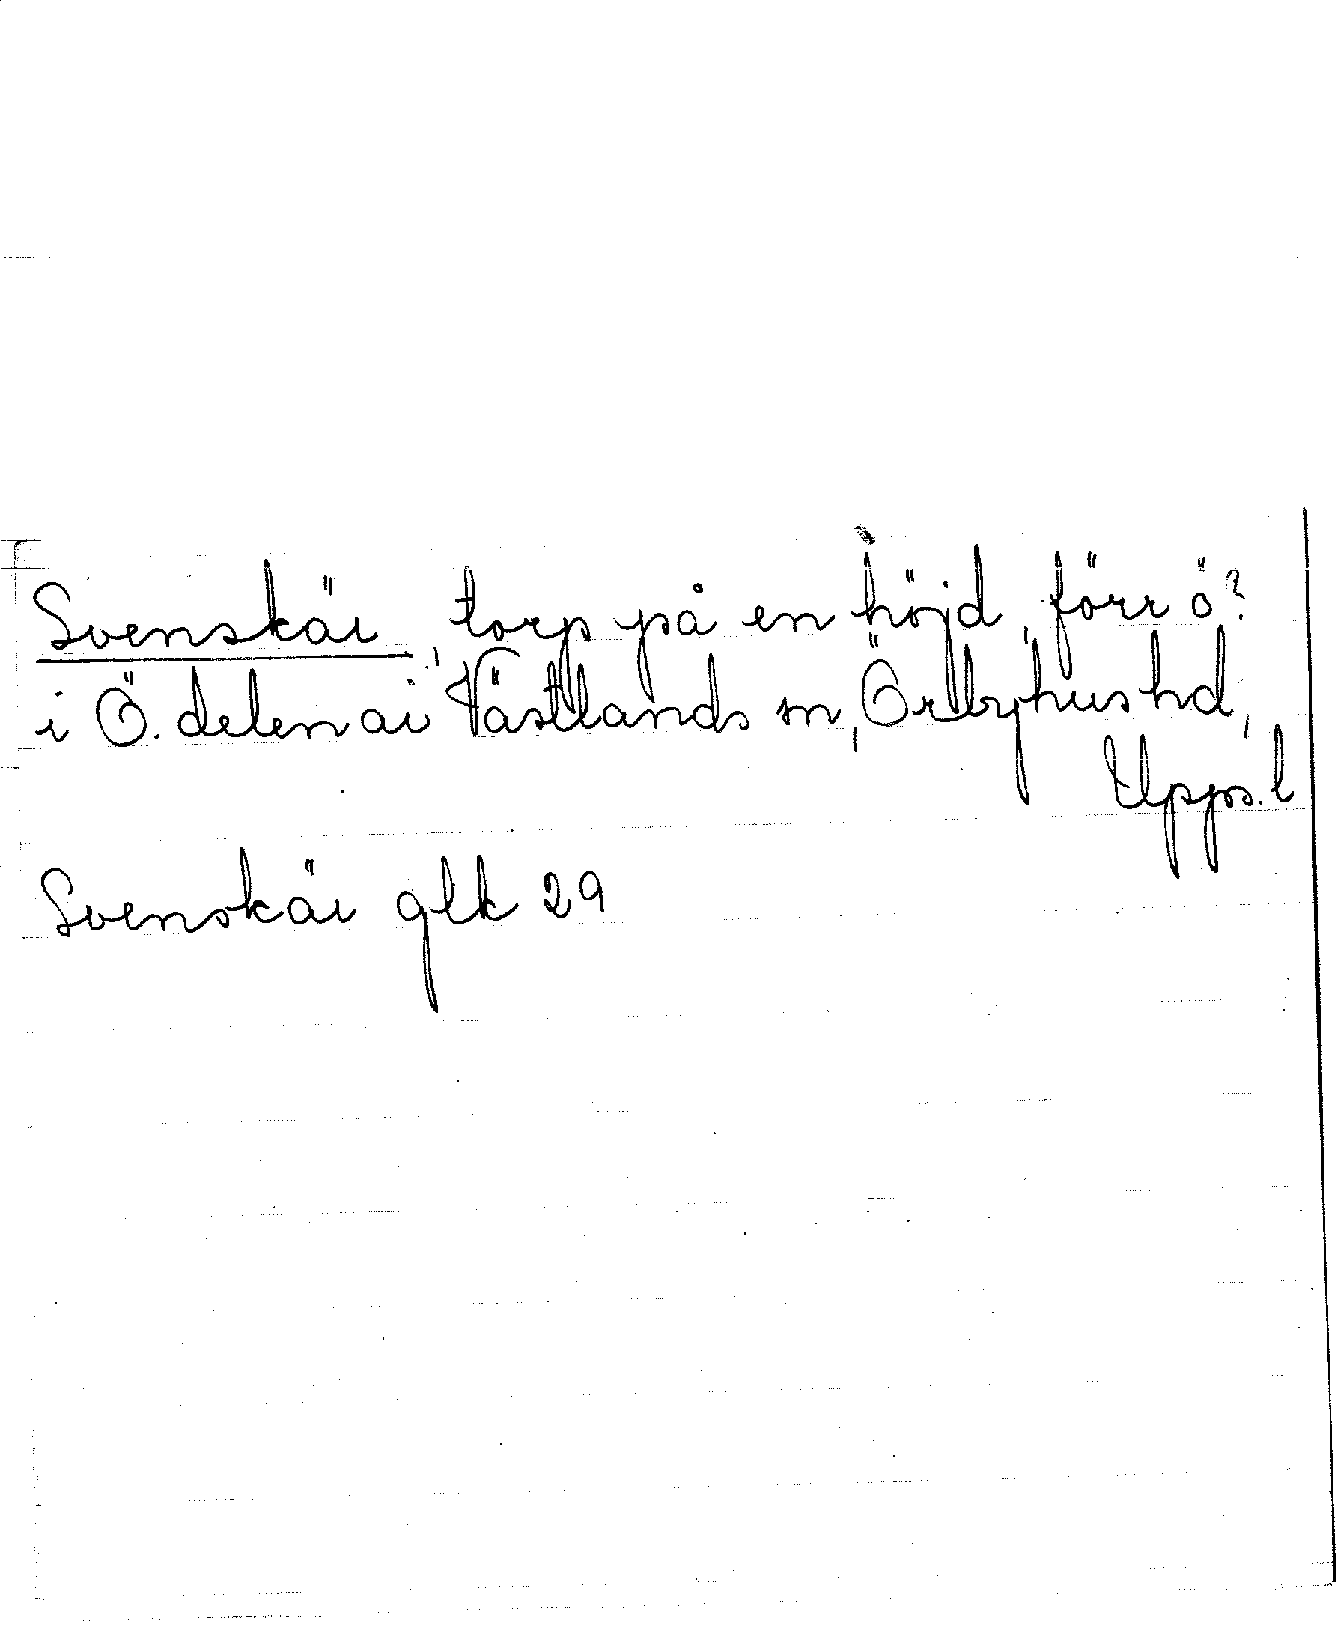 Svenskär, torp på en höjd, förr ö?
i Ö. delen av Västlands sn, Örbyhus hd,
Upps. l
Svenskär glk 29